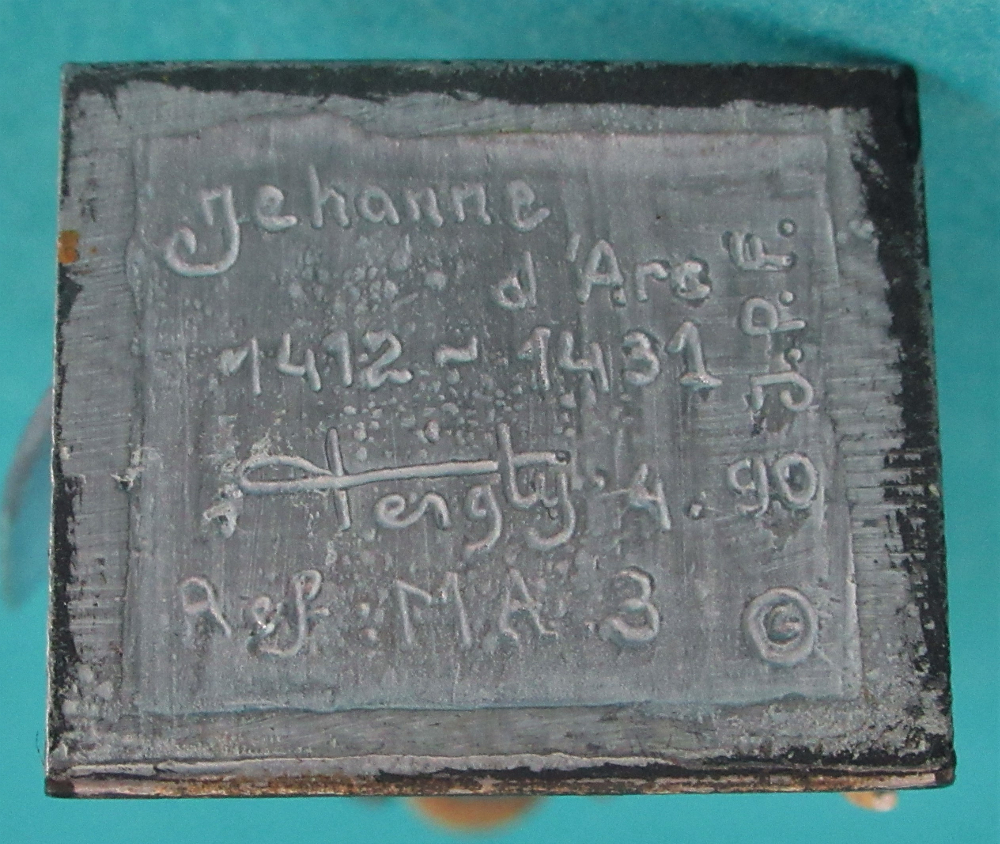 Jehanne
d'Arc
1412 ~ 1431
4.90
Ref: MA 3
©
J.P.F.